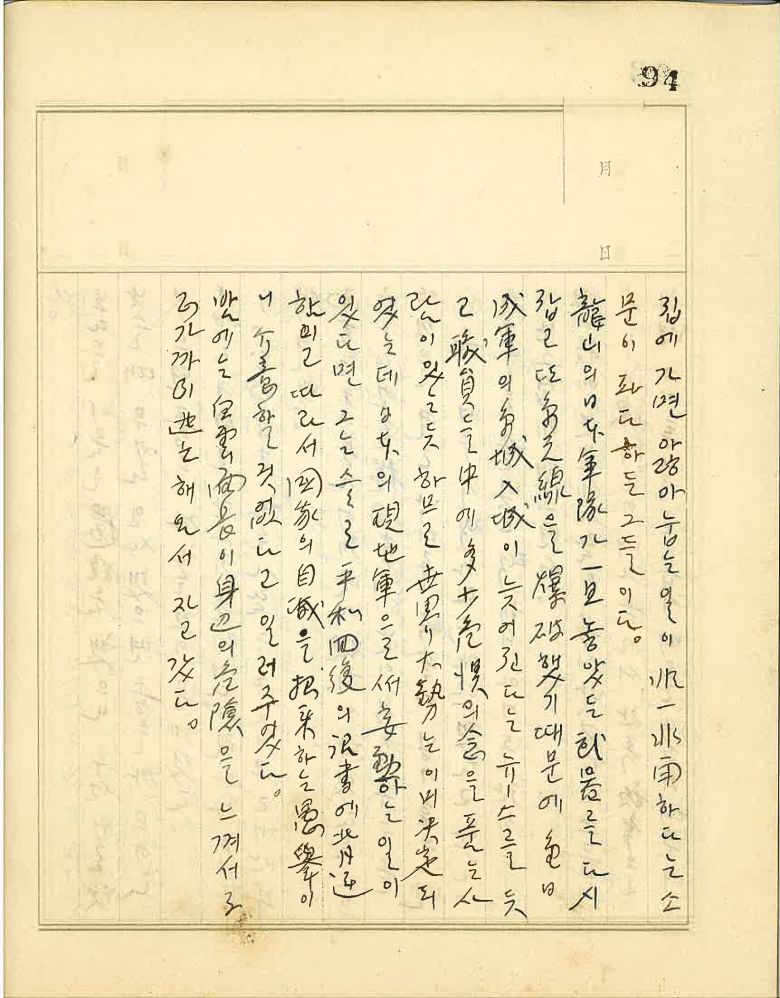 94
月
日
집에 가면 앓아 눕는 일이 非一非再하다는 소
문이 파다하든 그들이다。
龍山의 日本軍隊가 一旦 놓았든 武器를 다시
잡고 또 京元線을 爆破했기 때문에 金日
成軍의 京城入城이 늦어진다는 뉴ー스를 듯
고 職員들 中에 多少 危惧의 念을 품는 사
람이 있는듯 하므로 世界大勢는 이미 決定되
였는데 日本의 現地軍으로서 妄動하는 일이
있다면 그는 스스로 平和回復의 詔書에 背逆
함이고 따라서 國家의 自滅을 招来하는 愚擧이
니 介意할 것 없다고 일러주었다。
밤에는 面長이 身辺의 危險을 느껴서 우
리 가까이 해 와서 자고 갔다。